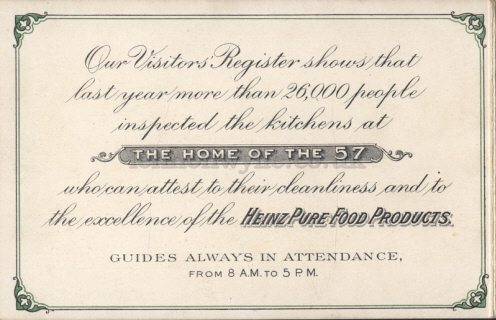 Our Visitors Register shows that
last year more than 26,000 people
inspected the kitchens at
THE HOME OF THE 57
who can attest to their cleanliness and to
the excellence of the HEINZ PURE FOOD PRODUCTS.
GUIDES ALWAYS IN ATTENDANCE,
FROM 8 A.M. TO 5 P.M.